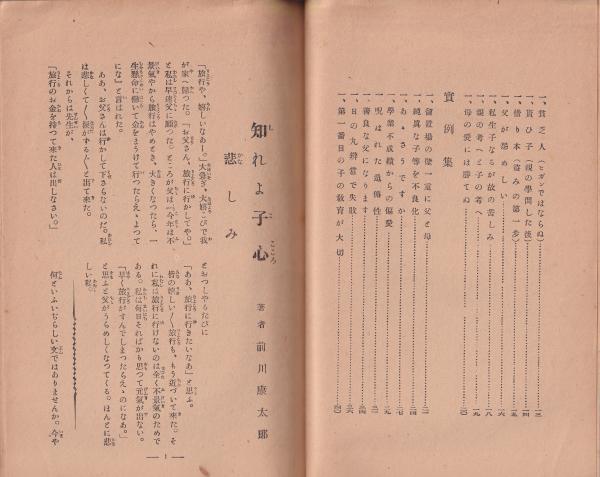 一、貧乏人(ヒガンではならぬ)…………一三
一、貰ひ子(親の學問した後)…………一四
一、借り本(盗みの第一歩)…………一五
一、父が恐めしい…………一六
一、私生子なるが故の苦しみ…………一八
一、親の考へと子の考へ…………一九
一、母の愛には勝てぬ…………二〇
實例集
一、留置場の壁一重に父と母…………二一
一、純真な子等を不良化…………二四
一、あゝさうですか…………二七
一、學業不成績からの偏愛…………二九
一、呪はれた遺傳性
一、善良な父になります
一、日の丸辨當で失敗
一、第一番目の子の教育が大切
知れよ子心
著者 前川康太郎
悲しみ
「旅行や、嬉しいなあー。」大急ぎ、大悦こびで我
が家へ歸つた。「お父さん、旅行に行かしてや。」
と私は早速父に願つた。ところが父は「今年は不
景氣やから旅行はやめとき、大きくなつたら、一
生懸命に働いて金をまうけて行つたらえゝよつて
にな」と言はれた。
ああ、お父さんは行かして下さらないのだ。私
は悲しくて〱涙がずる〱と出て來た。
それからは先生が、
「旅行のお金を持つて來た人は出しなさい。」
とおつしやるたびに
「ああ、旅行に行きたいなあ」と思ふ。
皆の嬉しい〱旅行も、もう近づいて來た。そ
れに私は旅行に行けないのは全く不景氣のためで
ある。私は毎日そればかり思つて元氣が出ない。
「早く旅行がすんでしまつたらえゝのになあ。」
と思ふと父がうらめしくなつてくる。ほんとに悲
しい私。
何といふいぢらしい文ではありませんか。今や
— 1 —